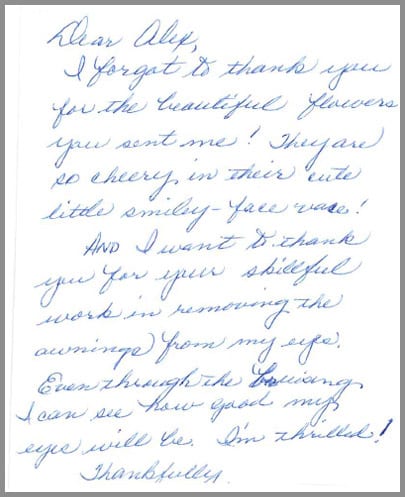 Dear Alex,
I forgot to thank you
for the beautiful flowers
you sent me! They are
so cheery in their cute
little smiley-face vase!
AND I want to thank
you for your skillful
work in removing the
awnings from my eyes.
Even through the bruising,
I can see how good my
eyes will be. I'm thrilled!
Thankfully,